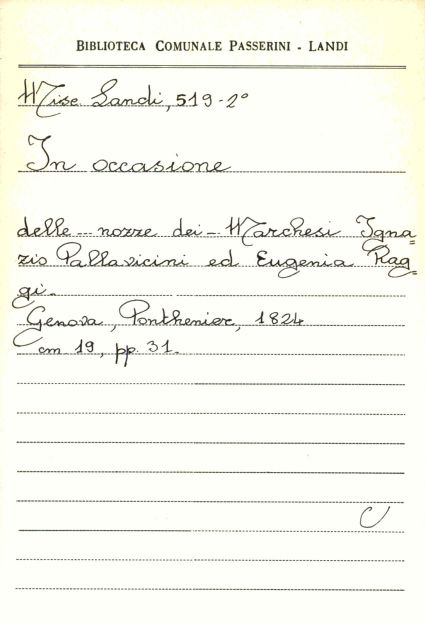 BIBLIOTECA COMUNALE PASSERINI - LANDI
Misc. Landi, 519-2°
In occasione
delle ... nozze dei - Marchesi Igna=
zio Pallavicini ed Eugenia Rag=
gi.
Genova, Ponthenier, 1824
cm 19, pp. 31.
C